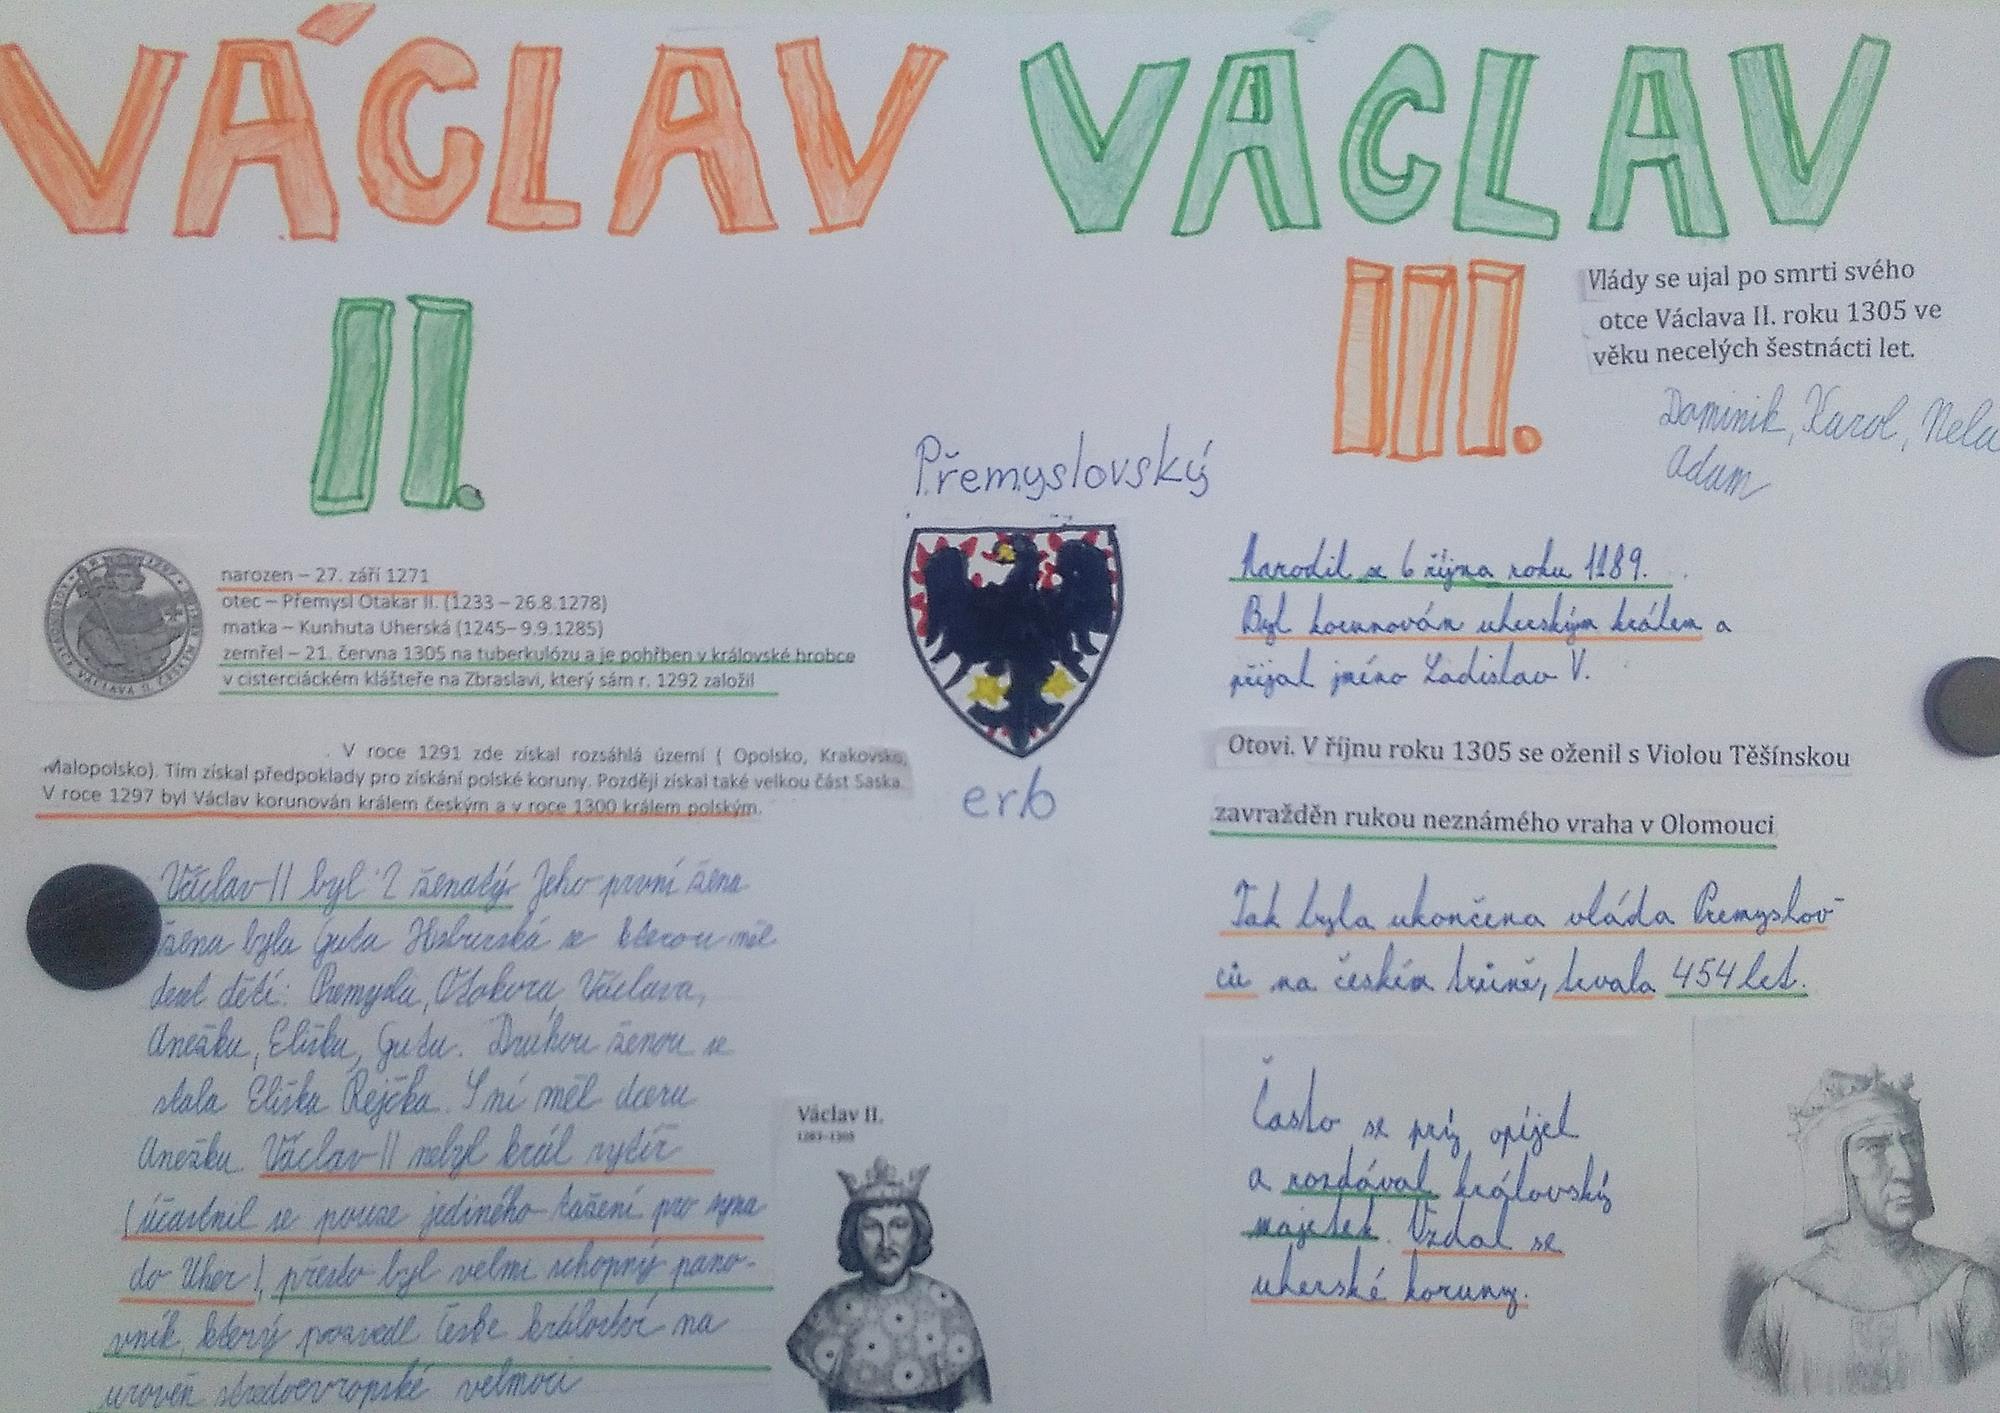 VÁCLAV
II.
narozen – 27. září 1271
otec – Přemysl Otakar II. (1233 – 26.8.1278)
matka – Kunhuta Uherská (1245– 9.9.1285)
zemřel – 21. června 1305 na tuberkulózu a je pohřben v královské hrobce
v cisterciáckém klášteře na Zbraslavi, který sám r. 1292 založil
. V roce 1291 zde získal rozsáhlá území ( Opolsko, Krakovsko,
Malopolsko). Tím získal předpoklady pro získání polské koruny. Později získal také velkou část Saska.
V roce 1297 byl Václav korunován králem českým a v roce 1300 králem polským.
Václav II byl 2 ženatý. Jeho první žena
žena byla Guta Habsburská se kterou měl
deset dětí: Přemysla, Otakara, Václava,
Anežku, Elišku, Gutu. Druhou ženou se
stala Eliška Rejčka. S ní měl dceru
Anežku. Václav II nebyl král rytíř
(účastnil se pouze jediného tažení pro syna
do Uher), přesto byl velmi schopný pano-
vník, který pozvedl České království na
úroveň středoevropské velmoci
Václav II.
1283-1305
Přemyslovský
erb
VÁCLAV
III.
Vlády se ujal po smrti svého
otce Václava II. roku 1305 ve
věku necelých šestnácti let.
Dominik, Karol, Nela
Adam
Narodil se 6 října roku 1189.
Byl korunován uherským králem a
přijal jméno Ladislav V.
Otovi. V říjnu roku 1305 se oženil s Violou Těšínskou
zavražděn rukou neznámého vraha v Olomouci
Tak byla ukončena vláda Přemyslov-
ců na českém trůně, trvala 454 let.
Často se prý opíjel
a rozdával královský
majetek. Vzdal se
uherské koruny.